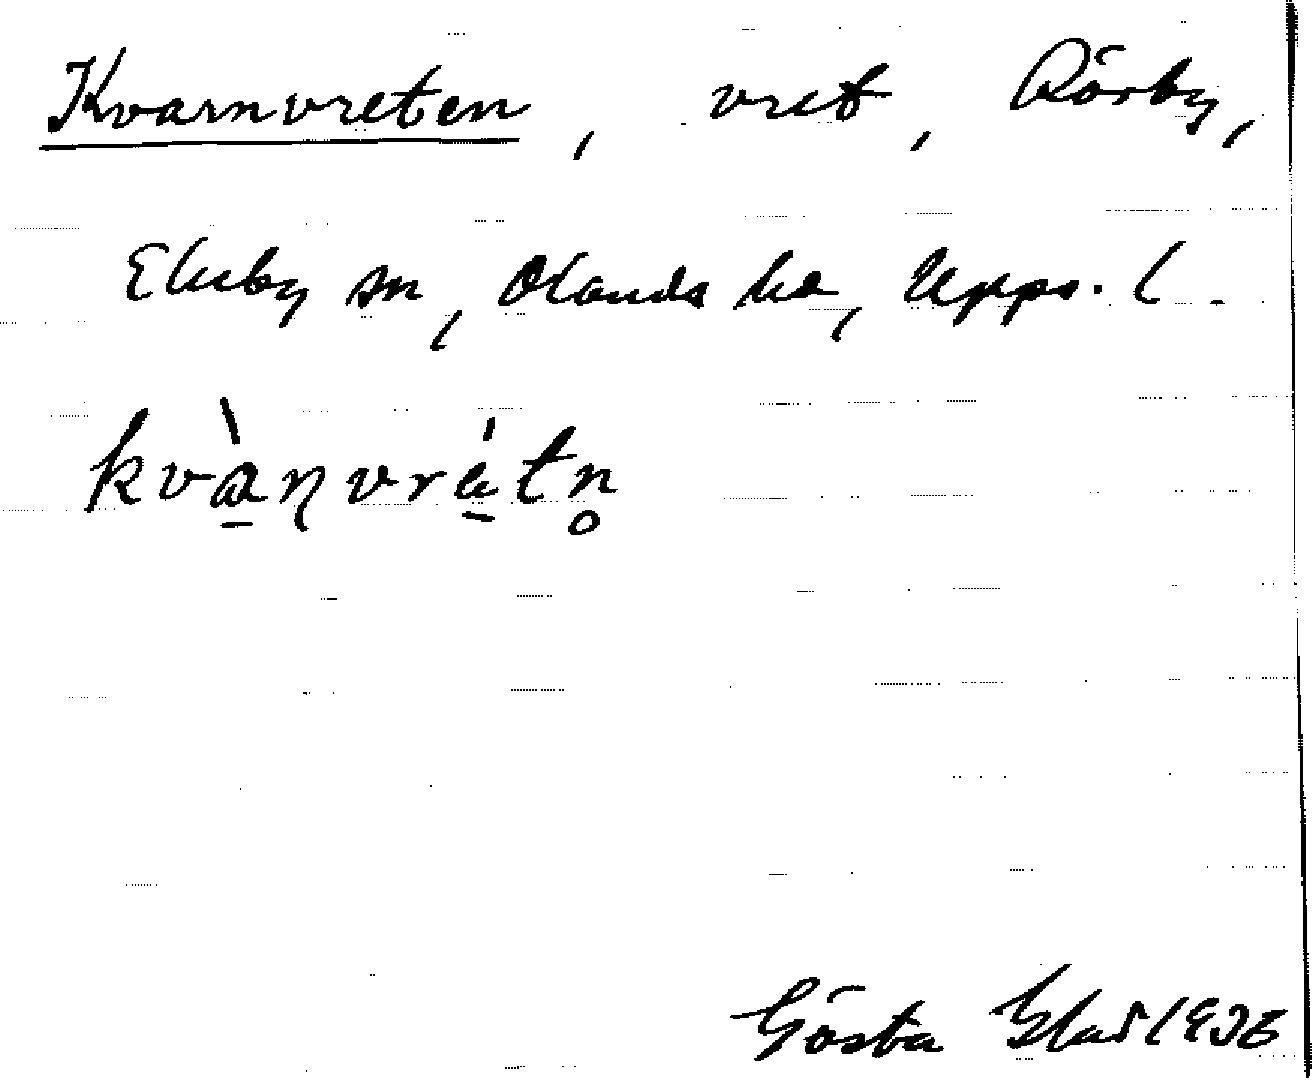 Kvarnvreten, vret, Rörby,
Ekeby sn, Olands hd, Upps. l.
kvàɳvrétn̥
Gösta